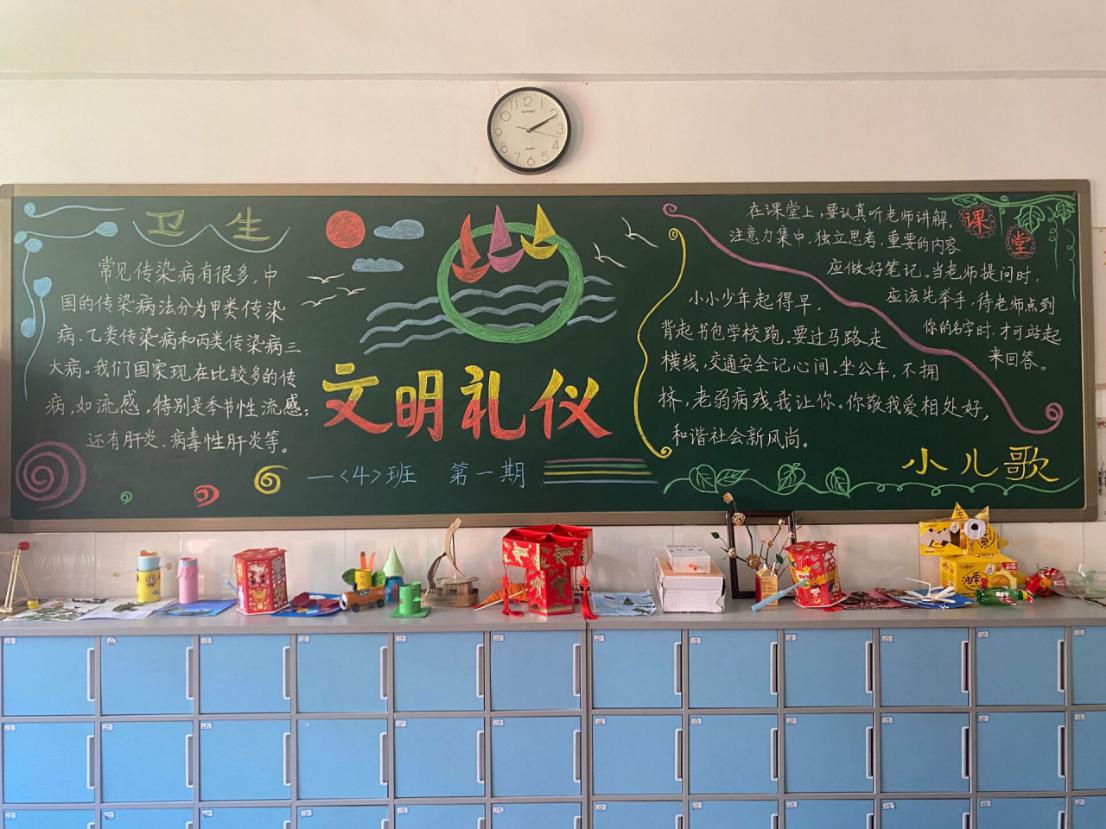 卫生
常见传染病有很多,中
国的传染病法分为甲类传染
病、乙类传染病和丙类传染病三
大病。我们国家现在比较多的传
病,如流感,特别是季节性流感;
还有肝炎、病毒性肝炎等。
文明礼仪
一<4>班 第一期
课堂
在课堂上,要认真听老师讲解,
注意力集中,独立思考,重要的内容
应做好笔记,当老师提问时,
应该先举手,待老师点到
你的名字时,才可站起
来回答。
小小少年起得早,
背起书包学校跑,要过马路走
横线,交通安全记心间,坐公车,不拥
挤,老弱病残我让你,你敬我爱相处好,
和谐社会新风尚。
小儿歌